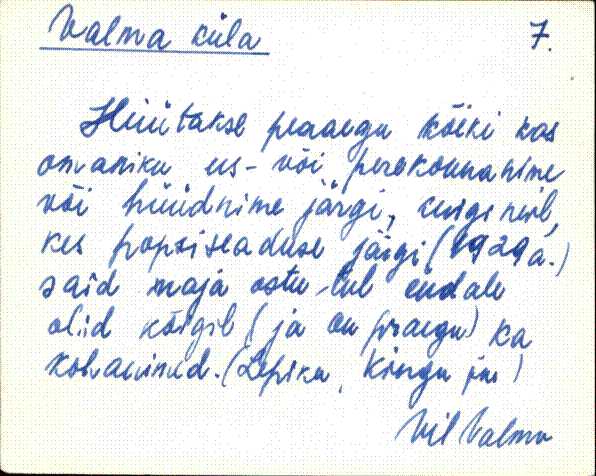 Valma küla 7.
Hüütakse peaaegu kõiki kas
omaniku ees- või perekonnanime
või hüüdnime järgi, kuigi neil,
kes popsiseaduse järgi (1929 a.)
said maja ostu-tul endale
olid kõigil (ja on praegu) ka
kohanimed. (Lepiku, Kingu jne)
Vil Valma